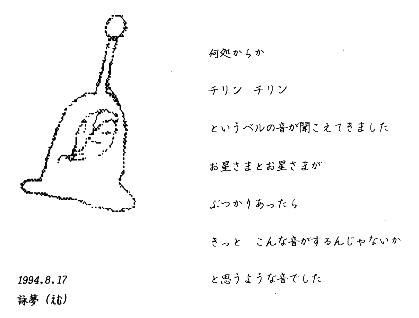 何処からか
チリン　チリン
というベルの音が聞こえてきました
お星さまとお星さまが
ぶつかりあったら
きっと　こんな音がするんじゃないか
と思うような音でした
1994.8.17
詠夢（えむ）